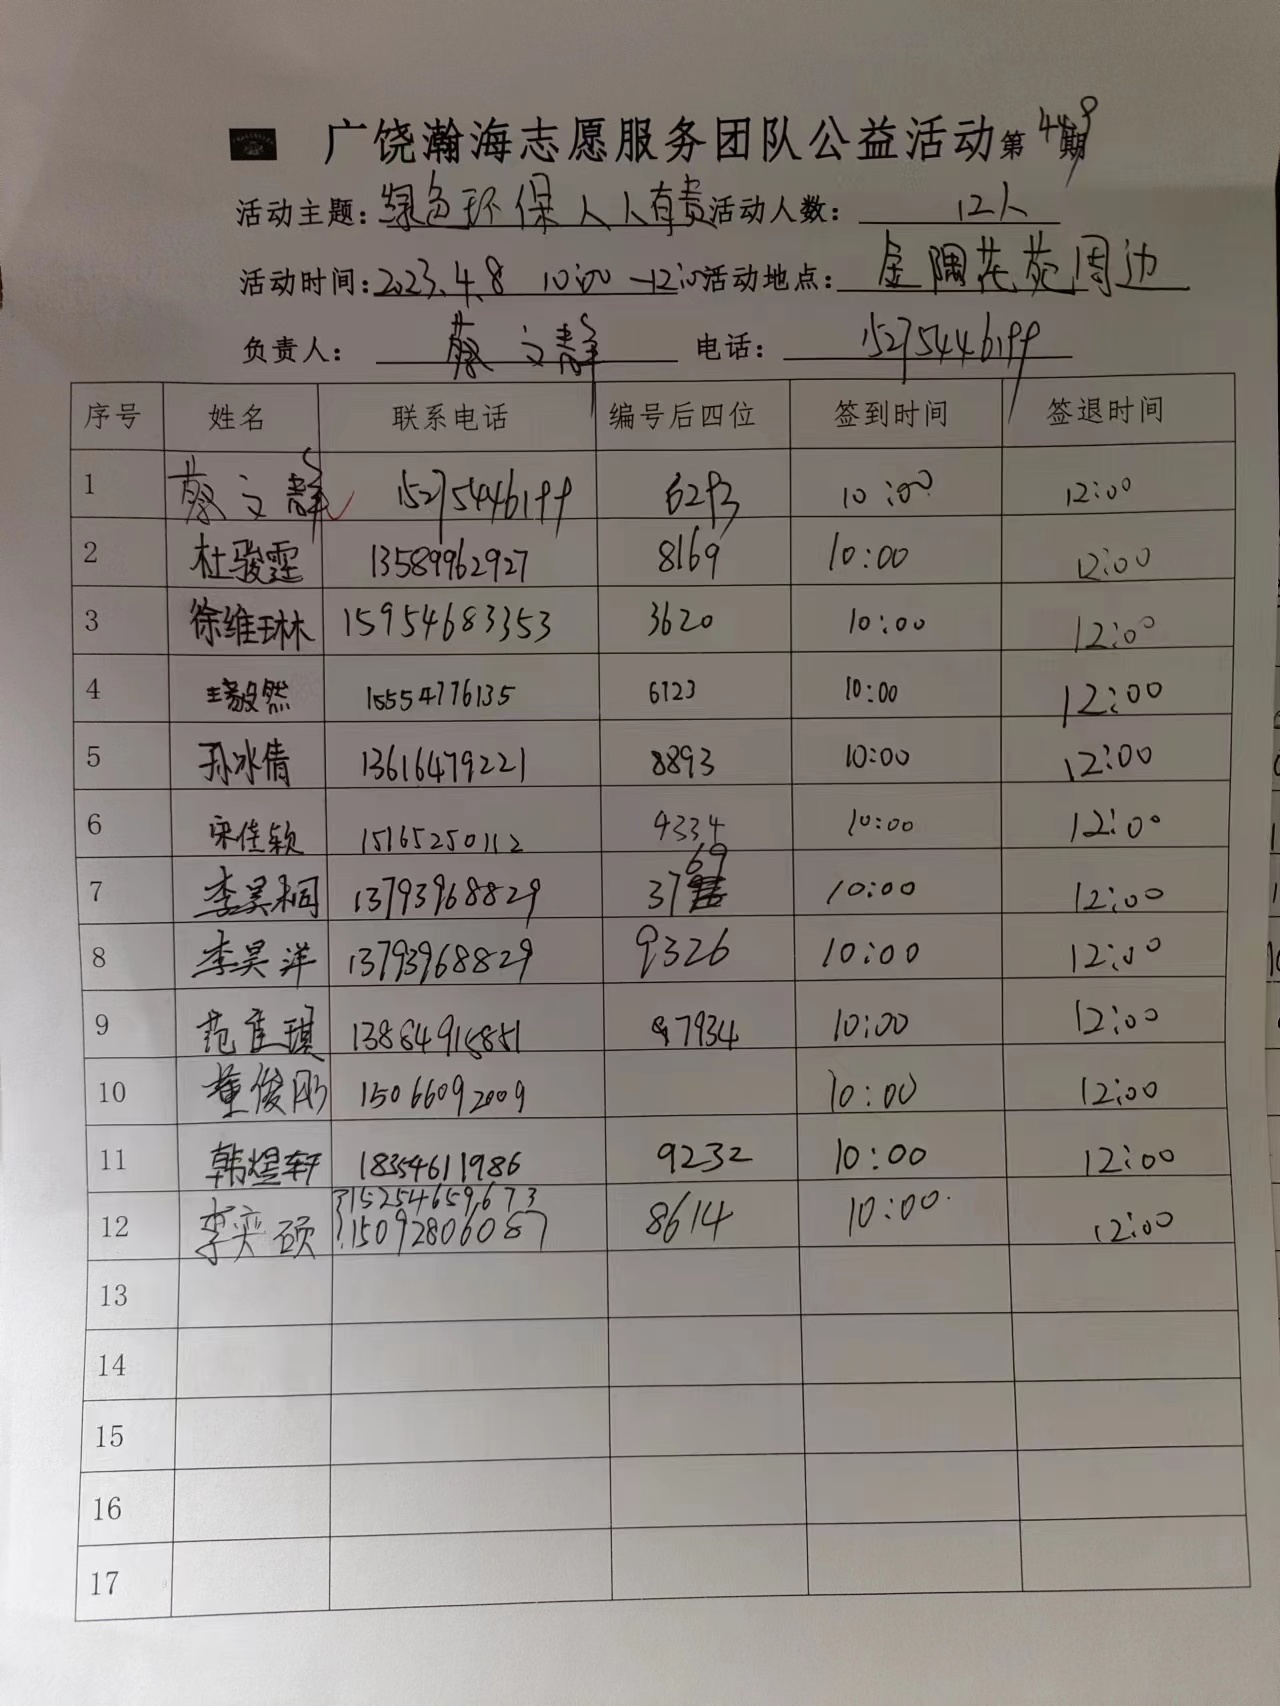 广饶瀚海志愿服务团队公益活动第449期
活动主题：绿色环保人人有责 活动人数：12人
活动时间：2023.4.8 10:00-12:00 活动地点：金隅花苑周边
负责人：蔡文群 电话：15275446199
序号 姓名 联系电话 编号后四位 签到时间 签退时间
1 蔡文群 15275446199 6293 10:00 12:00
2 杜骏霆 13589962927 8169 10:00 12:00
3 徐维琳 15954683353 3620 10:00 12:00
4 毅然 15554776135 6723 10:00 12:00
5 孙冰倩 13616479221 8893 10:00 12:00
6 宋佳颖 15165250112 4334 10:00 12:00
7 李昊桐 13793968829 3769 10:00 12:00
8 李昊洋 13793968829 9326 10:00 12:00
9 范佳琪 13864915851 7934 10:00 12:00
10 董俊彤 15066092009 10:00 12:00
11 韩煜轩 18354611986 9232 10:00 12:00
12 李奕硕 15254659673 15092806087 8614 10:00 12:00
13
14
15
16
17